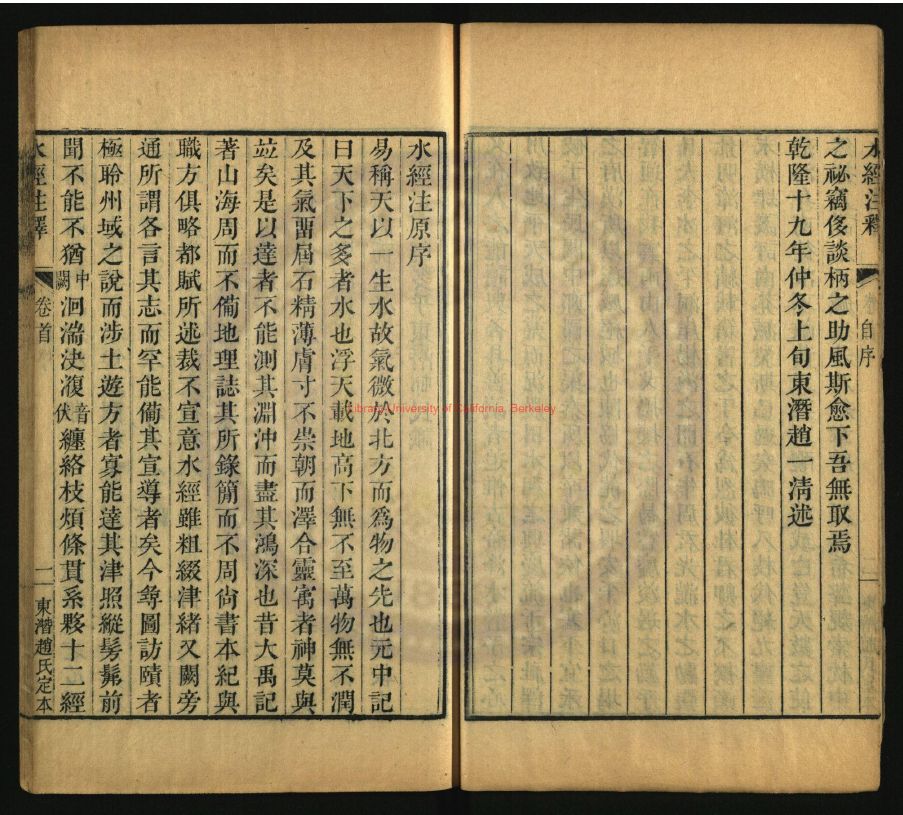 水經注釋 自序
之祕竊侈談柄之助風斯愈下吾無取焉
乾隆十九年仲冬上旬東潛趙一清述
Library, University of California, Berkeley
水經注原序
易稱天以一生水故氣微於北方而爲物之先也元中記
曰天下之多者水也浮天載地高下無不至萬物無不潤
及其氣畱屆石精薄膚寸不崇朝而澤合靈㝢者神莫與
竝矣是以達者不能測其淵沖而盡其鴻深也昔大禹記
著山海周而不備地理誌其所錄簡而不周尙書本紀與
職方俱略都賦所述裁不宣意水經雖粗綴津緒又闕旁
通所謂各言其志而罕能僃其宣導者矣今尋圖訪賾者
極聆州域之說而涉土遊方者寡能達其津照縱髣髴前
聞不能不猶中闕洄湍決澓音伏纏絡枝煩條貫系夥十二經
水經注釋 卷首 一 東潛趙氏定本